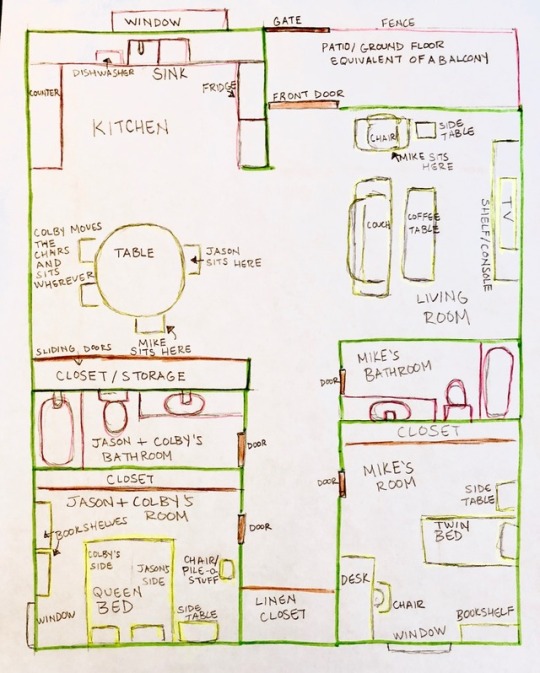 WINDOW
GATE
FENCE
PATIO/ GROUND FLOOR
EQUIVALENT OF A BALCONY
DISHWASHER
SINK
FRIDGE
COUNTER
KITCHEN
FRONT DOOR
CHAIR
SIDE
TABLE
MIKE SITS
HERE
COUCH
COFFEE
TABLE
TV
SHELF/CONSOLE
LIVING
ROOM
COLBY MOVES
THE
CHAIRS
AND
SITS
WHEREVER
TABLE
JASON
SITS HERE
MIKE
SITS HERE
SLIDING DOORS
CLOSET/STORAGE
JASON + COLBY'S
BATHROOM
DOOR
MIKE'S
BATHROOM
DOOR
CLOSET
CLOSET
JASON + COLBY'S
ROOM
BOOKSHELVES
DOOR
COLBY'S
SIDE
JASON'S
SIDE
QUEEN
BED
CHAIR/
PILE-O-
STUFF
SIDE
TABLE
WINDOW
LINEN
CLOSET
MIKE'S
ROOM
DOOR
SIDE
TABLE
TWIN
BED
DESK
CHAIR
BOOKSHELF
WINDOW